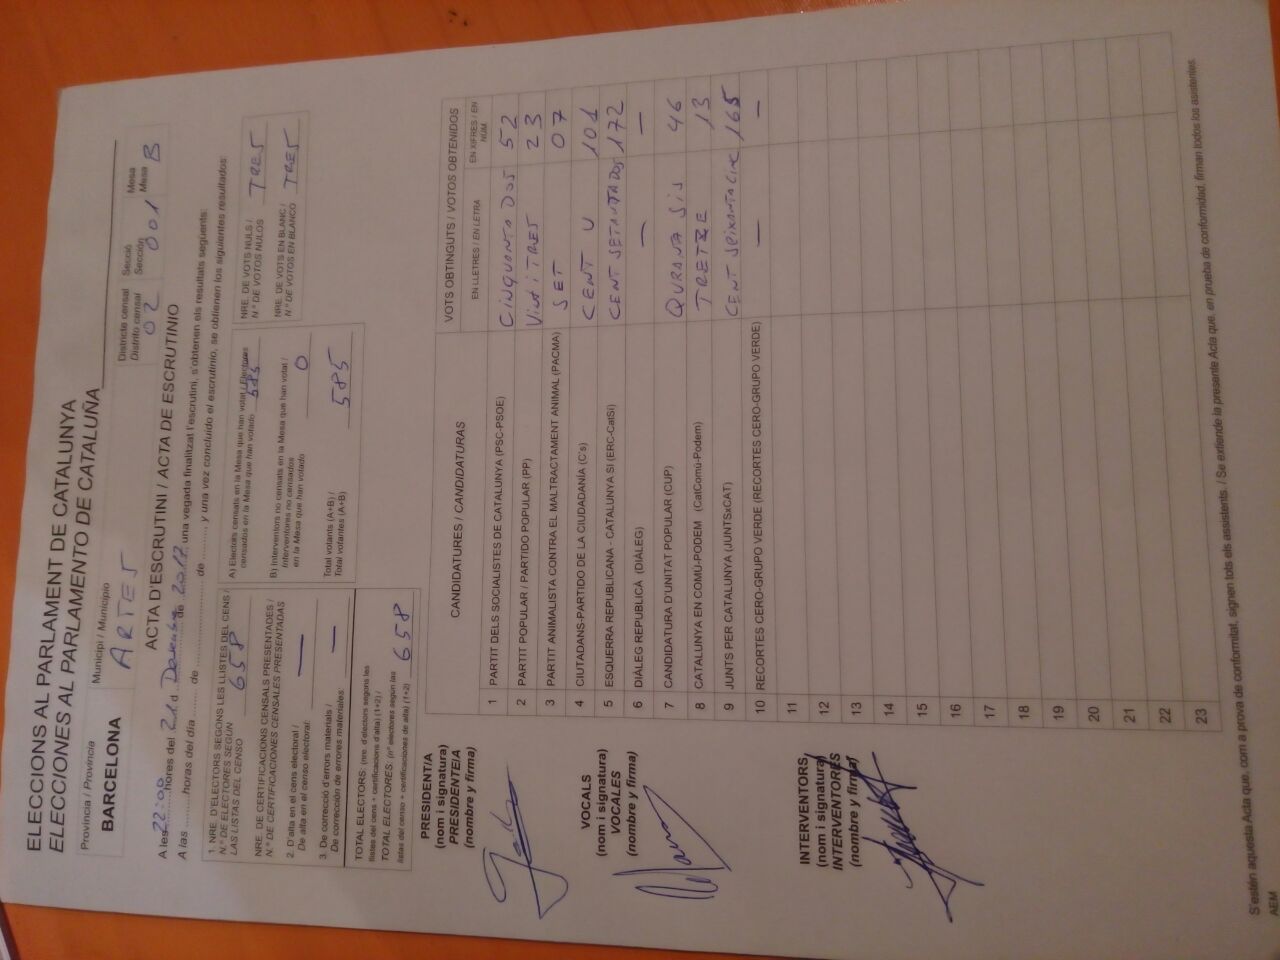 ELECCIONS AL PARLAMENT DE CATALUNYA
ELECCIONES AL PARLAMENTO DE CATALUÑA
Província / Provincia
BARCELONA
Municipi / Municipio
ARTÉS
Districte censal
Distrito censal
02
Secció
Sección
001
Mesa
Mesa
B
ACTA D'ESCRUTINI / ACTA DE ESCRUTINIO
A les 22:00 hores del de 2017, una vegada finalitzat l'escrutini, s'obtenen els resultats següents:
A las ........ horas del día ........ de ........ de ........ y una vez concluido el escrutinio, se obtienen los siguientes resultados:
1. NRE. D'ELECTORS SEGONS LES LLISTES DEL CENS /
N.º DE ELECTORES SEGÚN
LAS LISTAS DEL CENSO
658
NRE. DE CERTIFICACIONS CENSALS PRESENTADES /
N.º DE CERTIFICACIONES CENSALES PRESENTADAS
2. D'alta en el cens electoral /
De alta en el censo electoral: —
3. De correcció d'errors materials /
De corrección de errores materiales: —
TOTAL ELECTORS: (nre. d'electors segons les
llistes del cens + certificacions d'alta) (1+2) /
TOTAL ELECTORES: (nº electores según las
listas del censo + certificaciones de alta) (1+2)
658
A) Electors censats en la Mesa que han votat / Electores
censados en la Mesa que han votado 585
B) Interventors no censats en la Mesa que han votat /
Interventores no censados
en la Mesa que han votado
0
Total votants (A+B) /
Total votantes (A+B)
585
NRE. DE VOTS NULS /
N.º DE VOTOS NULOS
TRES
NRE. DE VOTS EN BLANC /
N.º DE VOTOS EN BLANCO
TRES
CANDIDATURES / CANDIDATURAS
VOTS OBTINGUTS / VOTOS OBTENIDOS
EN LLETRES / EN LETRA
EN XIFRES / EN NÚM.
1 PARTIT DELS SOCIALISTES DE CATALUNYA (PSC-PSOE) CINQUANTA DOS 52
2 PARTIT POPULAR / PARTIDO POPULAR (PP) VINTITRES 23
3 PARTIT ANIMALISTA CONTRA EL MALTRACTAMENT ANIMAL (PACMA) SET 07
4 CIUTADANS-PARTIDO DE LA CIUDADANÍA (C's) CENT U 101
5 ESQUERRA REPUBLICANA - CATALUNYA SÍ (ERC-CatSí) CENT SETANTA DOS 172
6 DIÀLEG REPUBLICÀ (DIÀLEG) — —
7 CANDIDATURA D'UNITAT POPULAR (CUP) QURANA SIS 46
8 CATALUNYA EN COMÚ-PODEM (CatComú-Podem) TRETZE 13
9 JUNTS PER CATALUNYA (JUNTSxCAT) CENT 165
10 RECORTES CERO-GRUPO VERDE (RECORTES CERO-GRUPO VERDE) — —
11
12
13
14
15
16
17
18
19
20
21
22
23
PRESIDÈNCIA
(nom i signatura)
PRESIDENTE/A
(nombre y firma)
VOCALS
(nom i signatura)
VOCALES
(nombre y firma)
INTERVENTORS
(nom i signatura)
INTERVENTORES
(nombre y firma)
S'estén aquesta Acta que, com a prova de conformitat, signen tots els assistents. / Se extiende la presente Acta que, en prueba de conformidad, firman todos los asistentes.
AEM